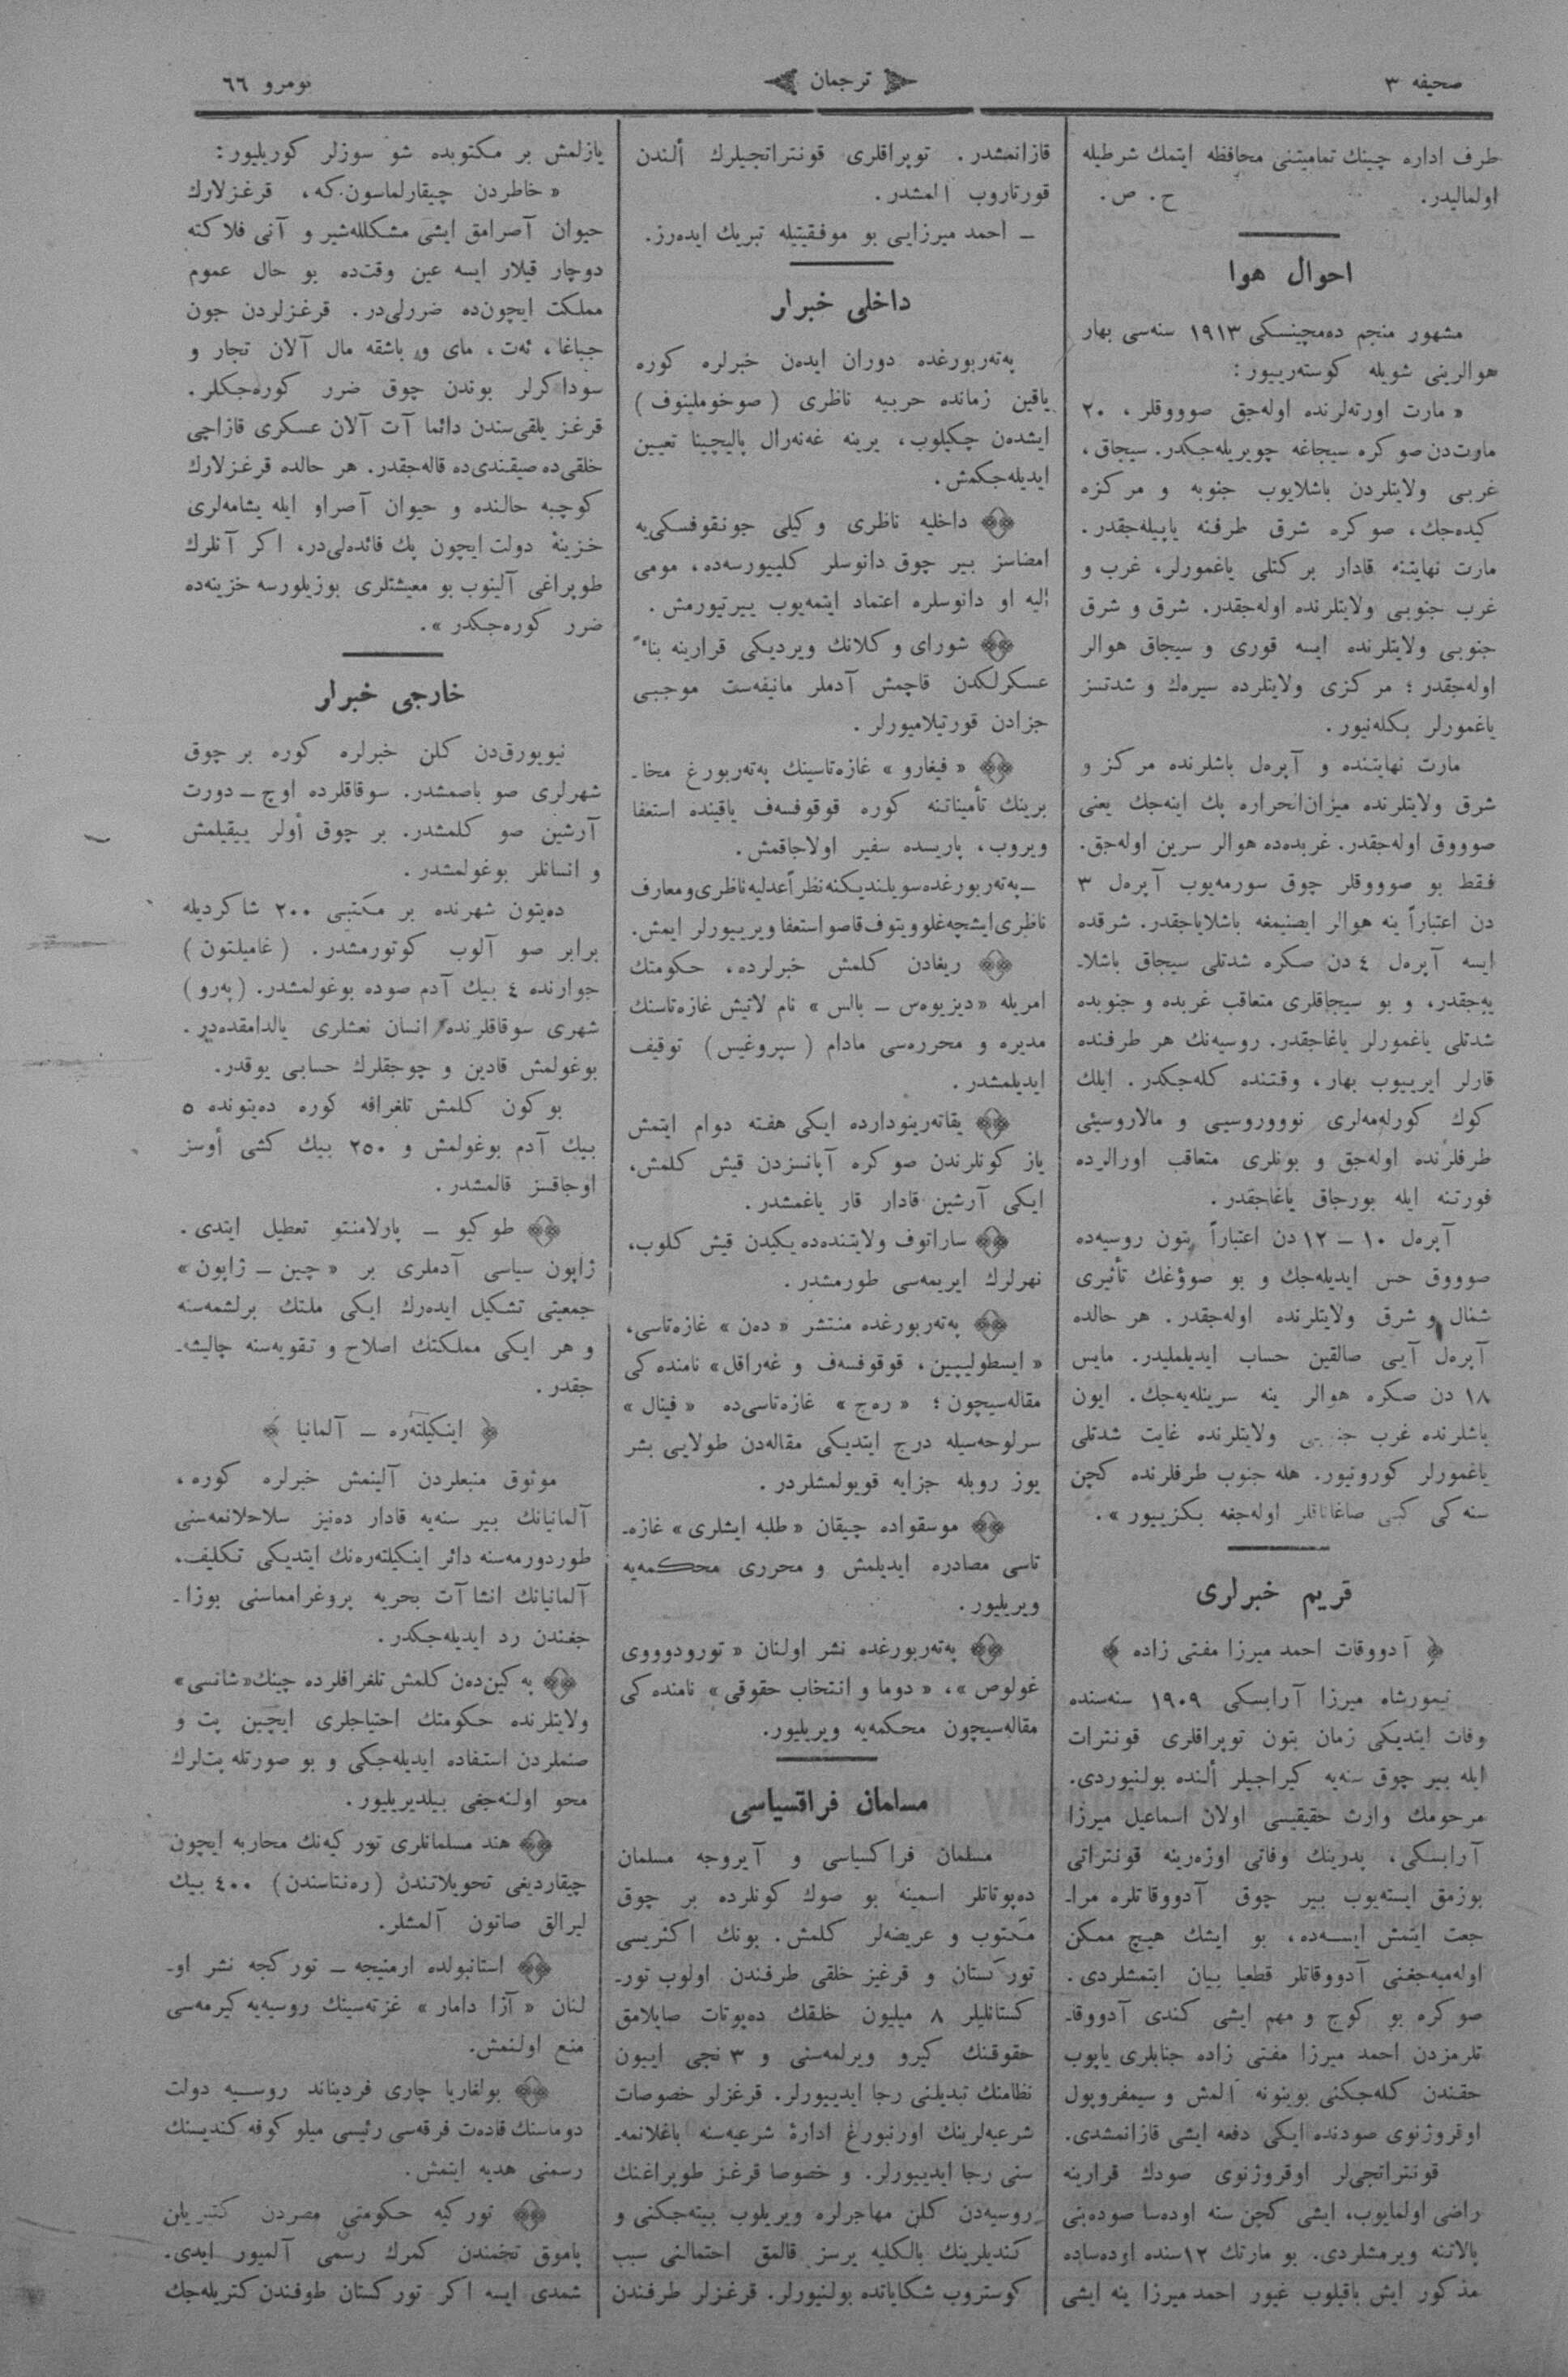 صحیفه ٣
ترجمان
نومرو ٦٦
طرف اداره چینك تمامیتنی محافظه ایتمك شرطیله
اولمالیدر. ح. ص.
احوال هوا
مشهور منجم ده‌مچینسكی ١٩١٣ سنه‌سی بهار
هوالرینی شویله كوسته‌رییور:
« مارت اورته‌لرنده اوله‌جق صووقلر، ٢٠
مارت‌دن صوكره سیجاغه چویریله‌جكدر. سیجاق،
غربی ولایتلردن باشلایوب جنوبه و مركزه
كیده‌جك، صوكره شرق طرفنه یاپیله‌جقدر.
مارت نهایتنه قادار بركتلی یاغمورلر، غرب و
غرب جنوبی ولایتلرنده اوله‌جقدر. شرق و شرق
جنوبی ولایتلرنده ایسه قوری و سیجاق هوالر
اوله‌جقدر؛ مركزی ولایتلرده سیره‌ك و شدتسز
یاغمورلر بكله‌نیور.
مارت نهایتنده و آپره‌ل باشلرنده مركز و
شرق ولایتلرنده میزان‌الحراره پك اینه‌جك یعنی
صوووق اوله‌جقدر. غربده‌ده هوالر سرین اوله‌جق.
فقط بو صوووقلر چوق سورمه‌یوب آپره‌ل ٣
دن اعتباراً ینه هوالر ایصنیمغه باشلایاجقدر. شرقده
ایسه آپره‌ل ٤ دن صكره شدتلی سیجاق باشلا-
یه‌جقدر، و بو سیجاقلری متعاقب غربده و جنوبده
شدتلی یاغمورلر یاغاجقدر. روسیه‌نك هر طرفنده
قارلر ایرییوب بهار، وقتنده كله‌جكدر. ایلك
كوك كورله‌مه‌لری نوووروسیی و مالاروسیئی
طرفلرنده اوله‌جق و بونلری متعاقب اورالرده
فورتنه ایله بورجاق یاغاجقدر.
آپره‌ل ١٠ ــ ١٢ دن اعتباراً بتون روسیه‌ده
صوووق حس ایدیله‌جك و بو صوؤغك تأثیری
شمال و شرق ولایتلرنده اوله‌جقدر. هر حالده
آپره‌ل آیی صالقین حساب ایدیلملیدر. مایس
١٨ دن صكره هوالر ینه سرینله‌یه‌جك. ایون
باشلرنده غرب جنوبی ولایتلرنده غایت شدتلی
یاغمورلر كورونیور. هله جنوب طرفلرنده كچن
سنه كی كبی صاغاناقلر اوله‌جغه بكزییور ».
قریم خبرلری
﴿ آدووقات احمد میرزا مفتی زاده ﴾
تیمورشاه میرزا آرابسكی ١٩٠٩ سنه‌سنده
وفات ایتدیكی زمان بتون توپراقلری قونترات
ایله بیر چوق سنه‌یه كیراجیلر ألنده بولنیوردی.
مرحومك وارث حقیقیسی اولان اسماعیل میرزا
آرابسكی، پدرینك وفاتی اوزه‌رینه قونتراتی
بوزمق ایسته‌یوب بیر چوق آدووقاتلره مرا-
جعت ایتمش ایسه‌ده، بو ایشك هیچ ممكن
اوله‌میه‌جغنی آدووقاتلر قطعیا بیان ایتمشلردی.
صوكره بو كوج و مهم ایشی كندی آدووقا-
تلرمزدن احمد میرزا مفتی زاده جنابلری یاپوب
حقندن كله‌جكنی بوینونه آلمش و سیمفروپول
اوقروژنوی صودنده ایكی دفعه ایشی قازانمشدی.
قونتراتجی‌لر اوقروژنوی صودك قرارینه
راضی اولمایوب، ایشی كچن سنه اوده‌سا صوده‌بنی
پالاتنه ویرمشلردی. بو مارتك ١٢سنده اوده‌ساده
مذكور ایش باقیلوب غیور احمد میرزا ینه ایشی
قازانمشدر. توپراقلری قونتراتجیلرك ألندن
قورتاروب آلمشدر.
ــ احمد میرزایی بو موفقیتیله تبریك ایده‌رز.
داخلی خبرلر
په‌ته‌ربورغده دوران ایده‌ن خبرلره كوره
یاقین زمانده حربیه ناظری (صوخوملینوف)
ایشده‌ن چكیلوب، یرینه غه‌نه‌رال پالیچینا تعیین
ایدیله‌جكمش.
داخلیه ناظری وكیلی جونقوفسكی‌یه
امضاسز بیر چوق دانوسلر كلییورسه‌ده، مومی
الیه او دانوسلره اعتماد ایتمه‌یوب ییرتیورمش.
شورای وكلانك ویردیكی قرارینه بناءً
عسكرلكدن قاچمش آدملر مانیفه‌ست موجبی
جزادن قورتیلامیورلر.
« فیغارو » غازه‌تاسینك په‌ته‌ربورغ مخا-
برینك تأمیناتنه كوره قوقوفسه‌ف یاقینده استعفا
ویروب، پاریسده سفیر اولاجاقمش.
ــ په‌ته‌ربورغده سویلندیكنه نظراً عدلیه ناظری و معارف
ناظری ایشچه‌غلوویتوف قاصو استعفا ویرییورلر ایمش.
ریغادن كلمش خبرلرده، حكومتك
امریله « دیزیوه‌س ــ بالس » نام لاتیش غازه‌تاسنك
مدیره و محرره‌سی مادام (سپروغیس) توقیف
ایدیلمشدر.
یقاته‌رینودارده ایكی هفته دوام ایتمش
یاز كونلرندن صوكره آپانسزدن قیش كلمش،
ایكی آرشین قادار قار یاغمشدر.
ساراتوف ولایتنده‌ده یكیدن قیش كلوب،
نهرلرك ایریمه‌سی طورمشدر.
په‌ته‌ربورغده منتشر « ده‌ن » غازه‌تاسی،
« ایسطولیپین، قوقوفسه‌ف و غه‌راقل » نامنده كی
مقاله‌سیچون؛ « ره‌ج » غازه‌تاسی‌ده « فینال »
سرلوحه‌سیله درج ایتدیكی مقاله‌دن طولایی بشر
یوز روبله جزایه قویولمشلردر.
موسقواده چیقان « طلبه ایشلری » غازه-
تاسی مصادره ایدیلمش و محرری محكمه‌یه
ویریلیور.
په‌ته‌ربورغده نشر اولنان « تورودوووی
غولوص »، « دوما و انتخاب حقوقی » نامنده كی
مقاله‌سیچون محكمه‌یه ویریلیور.
مسلمان فراقسیاسی
مسلمان فراكسیاسی و آیروجه مسلمان
ده‌پوتاتلر اسمینه بو صوك كونلرده بر چوق
مكتوب و عریضه‌لر كلمش. بونك اكثریسی
توركستان و قرغیز خلقی طرفندن اولوب تور-
كستانلیلر ٨ میلیون خلقك ده‌پوتات صایلامق
حقوقنك كیرو ویرلمه‌سنی و ٣ نجی ایيون
نظامنك تبدیلنی رجا ایدییورلر. قرغزلر خصوصات
شرعیه‌لرینك اورنبورغ ادارۀ شرعیه‌سنه باغلانمه-
سنی رجا ایدییورلر. و خصوصا قرغز طوپراغنك
روسیه‌دن كلن مهاجرلره ویریلوب بیته‌جكنی و
كندیلرینك بالكلیه یرسز قالمق احتمالنی سبب
كوستروب شكایاتده بولنیورلر. قرغزلر طرفندن
یازلمش بر مكتوبده شو سوزلر كوریلیور:
« خاطردن چیقارلماسون.كه، قرغزلارك
حیوان آصرامق ایشی مشكلله‌شیر و آنی فلاكته
دوچار قیلار ایسه عین وقت‌ده بو حال عموم
مملكت ایچون‌ده ضررلی‌در. قرغزلردن جون
جباغا، ئه‌ت، مای و باشقه مال آلان تجار و
سوداكرلر بوندن چوق ضرر كوره‌جكلر.
قرغز یلقی‌سندن دائما آت آلان عسكری قازاچی
خلقی‌ده صیقندی‌ده قاله‌جقدر. هر حالده قرغزلارك
كوچبه حالنده و حیوان آصراو ایله یشامه‌لری
خزینۀ دولت ایچون پك فائده‌لی‌در، اكر آنلرك
طوپراغی آلینوب بو معیشتلری بوزیلورسه خزینه‌ده
ضرر كوره‌جكدر ».
خارجی خبرلر
نیویورق‌دن كلن خبرلره كوره بر چوق
شهرلری صو باصمشدر. سوقاقلرده اوچ ــ دورت
آرشین صو كلمشدر. بر چوق أولر ییقیلمش
و انسانلر بوغولمشدر.
ده‌یتون شهرنده بر مكتبی ٢٠٠ شاكردیله
برابر صو آلوب كوتورمشدر. (غامیلتون)
جوارنده ٤ بیك آدم صوده بوغولمشدر. (په‌رو)
شهری سوقاقلرنده انسان نعشلری یالدامقده‌در.
بوغولمش قادین و چوجقلرك حسابی یوقدر.
بو كون كلمش تلغرافه كوره ده‌یتونده ٥
بیك آدم بوغولمش و ٢٥٠ بیك كشی أوسز
اوجاقسز قالمشدر.
طوكیو ــ پارلامنتو تعطیل ایتدی.
ژاپون سیاسی آدملری بر « چین ــ ژاپون »
جمعیتی تشكیل ایده‌رك ایكی ملتك برلشمه‌سنه
و هر ایكی مملكتك اصلاح و تقویه‌سنه چالیشه-
جقدر.
﴿ اینكیلته‌ره ــ آلمانیا ﴾
موثوق منبعلردن آلینمش خبرلره كوره،
آلمانیانك بیر سنه‌یه قادار ده‌نیز سلاحلانمه‌سنی
طوردورمه‌سنه دائر اینكیلته‌ره‌نك ایتدیكی تكلیف،
آلمانیانك انشاآت بحریه پروغرامماسنی بوزا-
جغندن رد ایدیله‌جكدر.
په‌كین‌ده‌ن كلمش تلغرافلرده چینك « شانسی »
ولایتلرنده حكومتك احتیاجلری ایچین پت و
صنملردن استفاده ایدیله‌جكی و بو صورتله پت‌لرك
محو اولنه‌جغی بیلدیریلیور.
هند مسلمانلری توركیه‌نك محاربه ایچون
چیقاردیغی تحویلاتندن (ره‌نتاسندن) ٤٠٠ بیك
لیرالق صاتون آلمشلر.
استانبولده ارمنیجه ــ توركجه نشر او-
لنان « آزا دامار » غزته‌سینك روسیه‌یه كیرمه‌سی
منع اولنمش.
بولغاریا چاری فردیناند روسیه دولت
دوماسنك قاده‌ت فرقه‌سی رئیسی میلوكوفه كندیسنك
رسمنی هدیه ایتمش.
توركیه حكومتی مصردن كتیریلن
پاموق تخمندن كمرك رسمی آلمیور ایدی.
شمدی ایسه اكر توركستان طوفندن كتریله‌جك